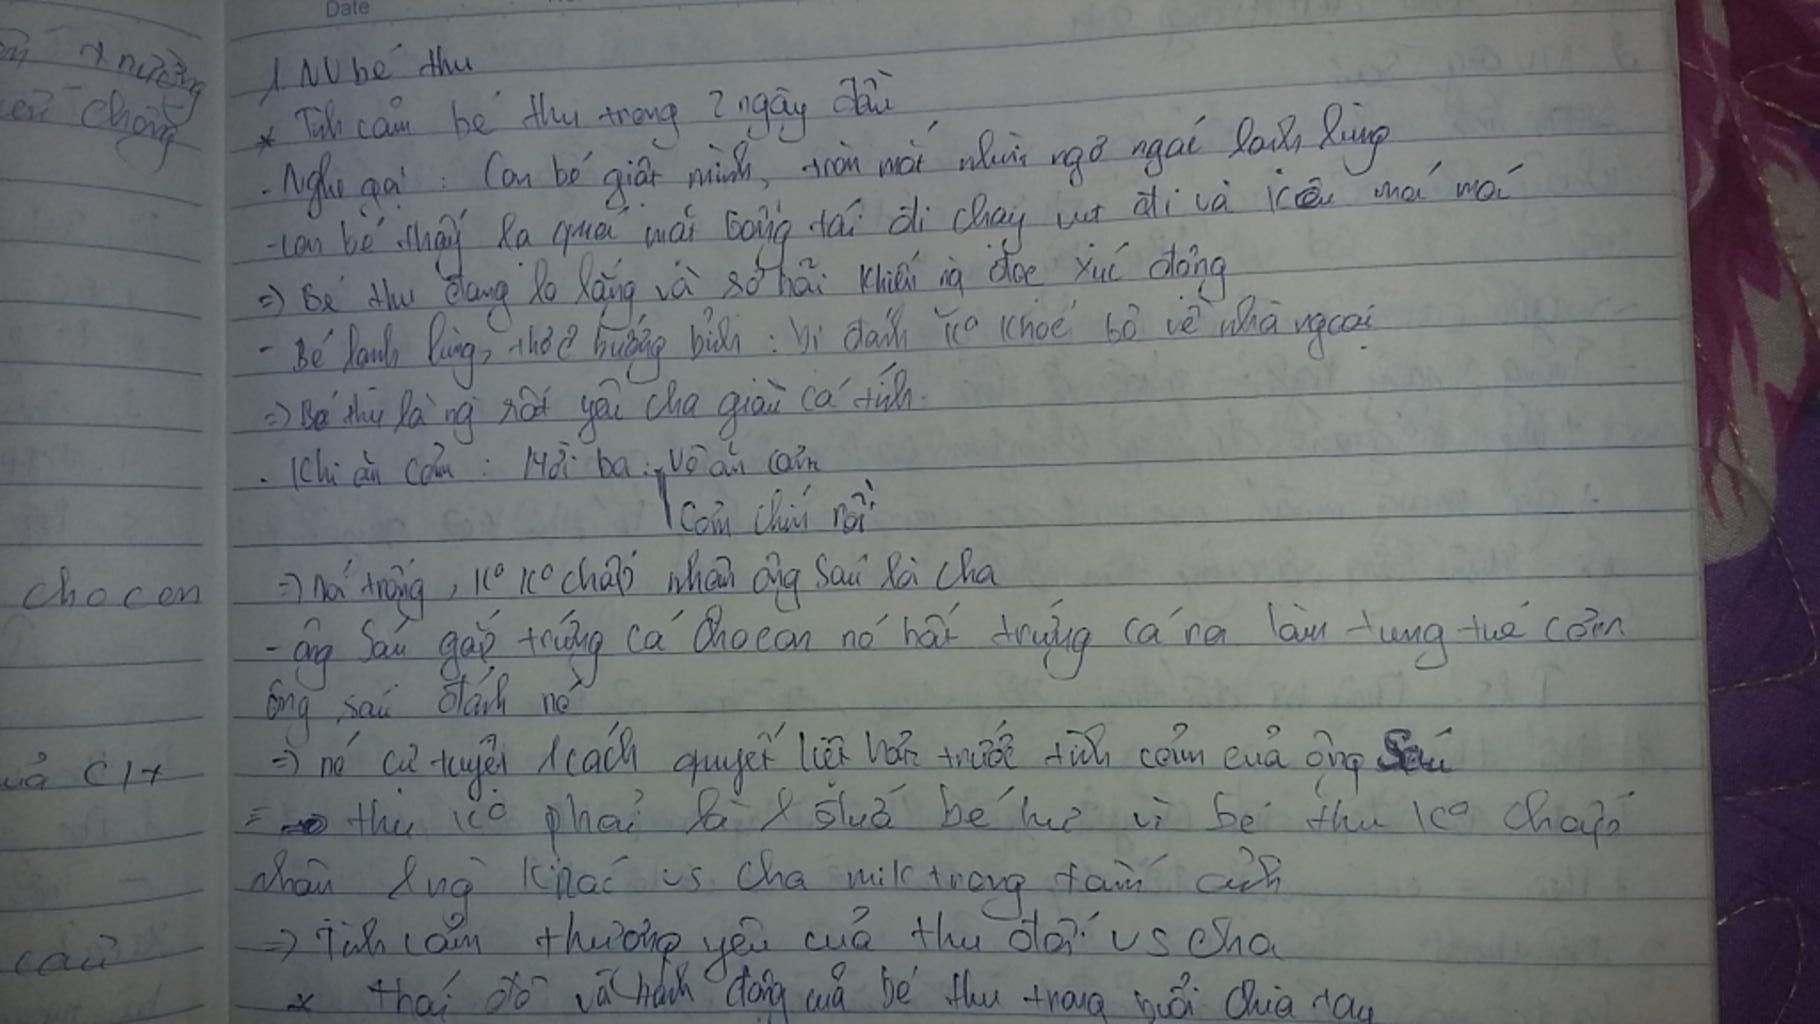 Date
x nướng
chồng
1, NV bé thu
* Tình cảm bé thu trong 2 ngày đầu
. Nghe gọi : Con bé giật mình, tròn mắt nhìn ngơ ngác lạnh lùng
- con bé thấy lạ quá mặt bỗng tái đi chạy vụt đi và kêu má má
=> Bé thu đang lo lắng và sợ hãi khiến ng đọc xúc động
- Bé lạnh lùng, thờ ơ bướng bỉnh : bị đánh ko khóc bỏ về nhà ngoại
=> Bé thu là ng rất yêu cha giàu cá tính.
. Khi ăn cơm : Mời ba : Vô ăn cơm
Cơm chín rồi
=> nói trống, ko ko chấp nhận ông Sáu là cha
cho con
- ông Sáu gắp trứng cá cho con nó hất trứng cá ra làm tung toé cơm
ông sáu đánh nó
=> nó cự tuyệt 1 cách quyết liệt hơn trước tình cảm của ông Sáu
=> thu ko phải là 1 đứa bé hư vì bé thu ko chấp
nhận 1 ng khác vs cha mik trong tấm ảnh
=> Tình cảm thương yêu của thu đối vs cha
* thái độ và hành động của bé thu trong buổi chia tay